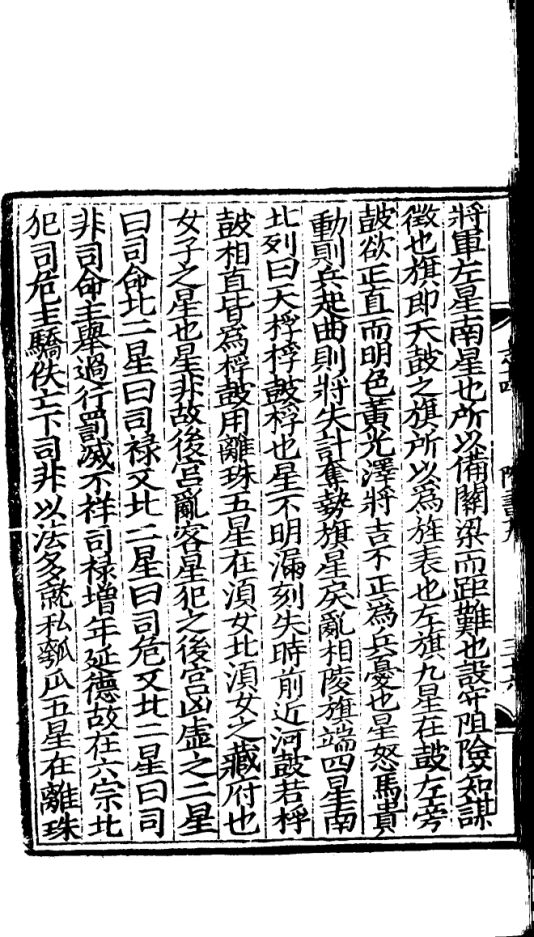 將軍左星南星也所以備關梁而距難也設守阻險知謀
徵也旗即天鼓之旗所以爲旌表也左旗九星在鼓左旁
鼓欲正直而明色黃光澤將吉不正爲兵憂也星怒馬貴
動則兵起曲則將失計奪勢旗星戾亂相陵旗端四星南
北列曰天桴桴鼓桴也星不明漏刻失時前近河鼓若桴
鼓相直皆爲桴鼓用離珠五星在湏女北湏女之藏府也
女子之星也星非故後宮亂客星犯之後宮凶虛之二星
曰司命北二星曰司禄又北二星曰司危又北二星曰司
非司命主舉過行罰滅不祥司禄增年延德故在六宗北
犯司危主驕佚亡下司非以法多就私瓠瓜五星在離珠